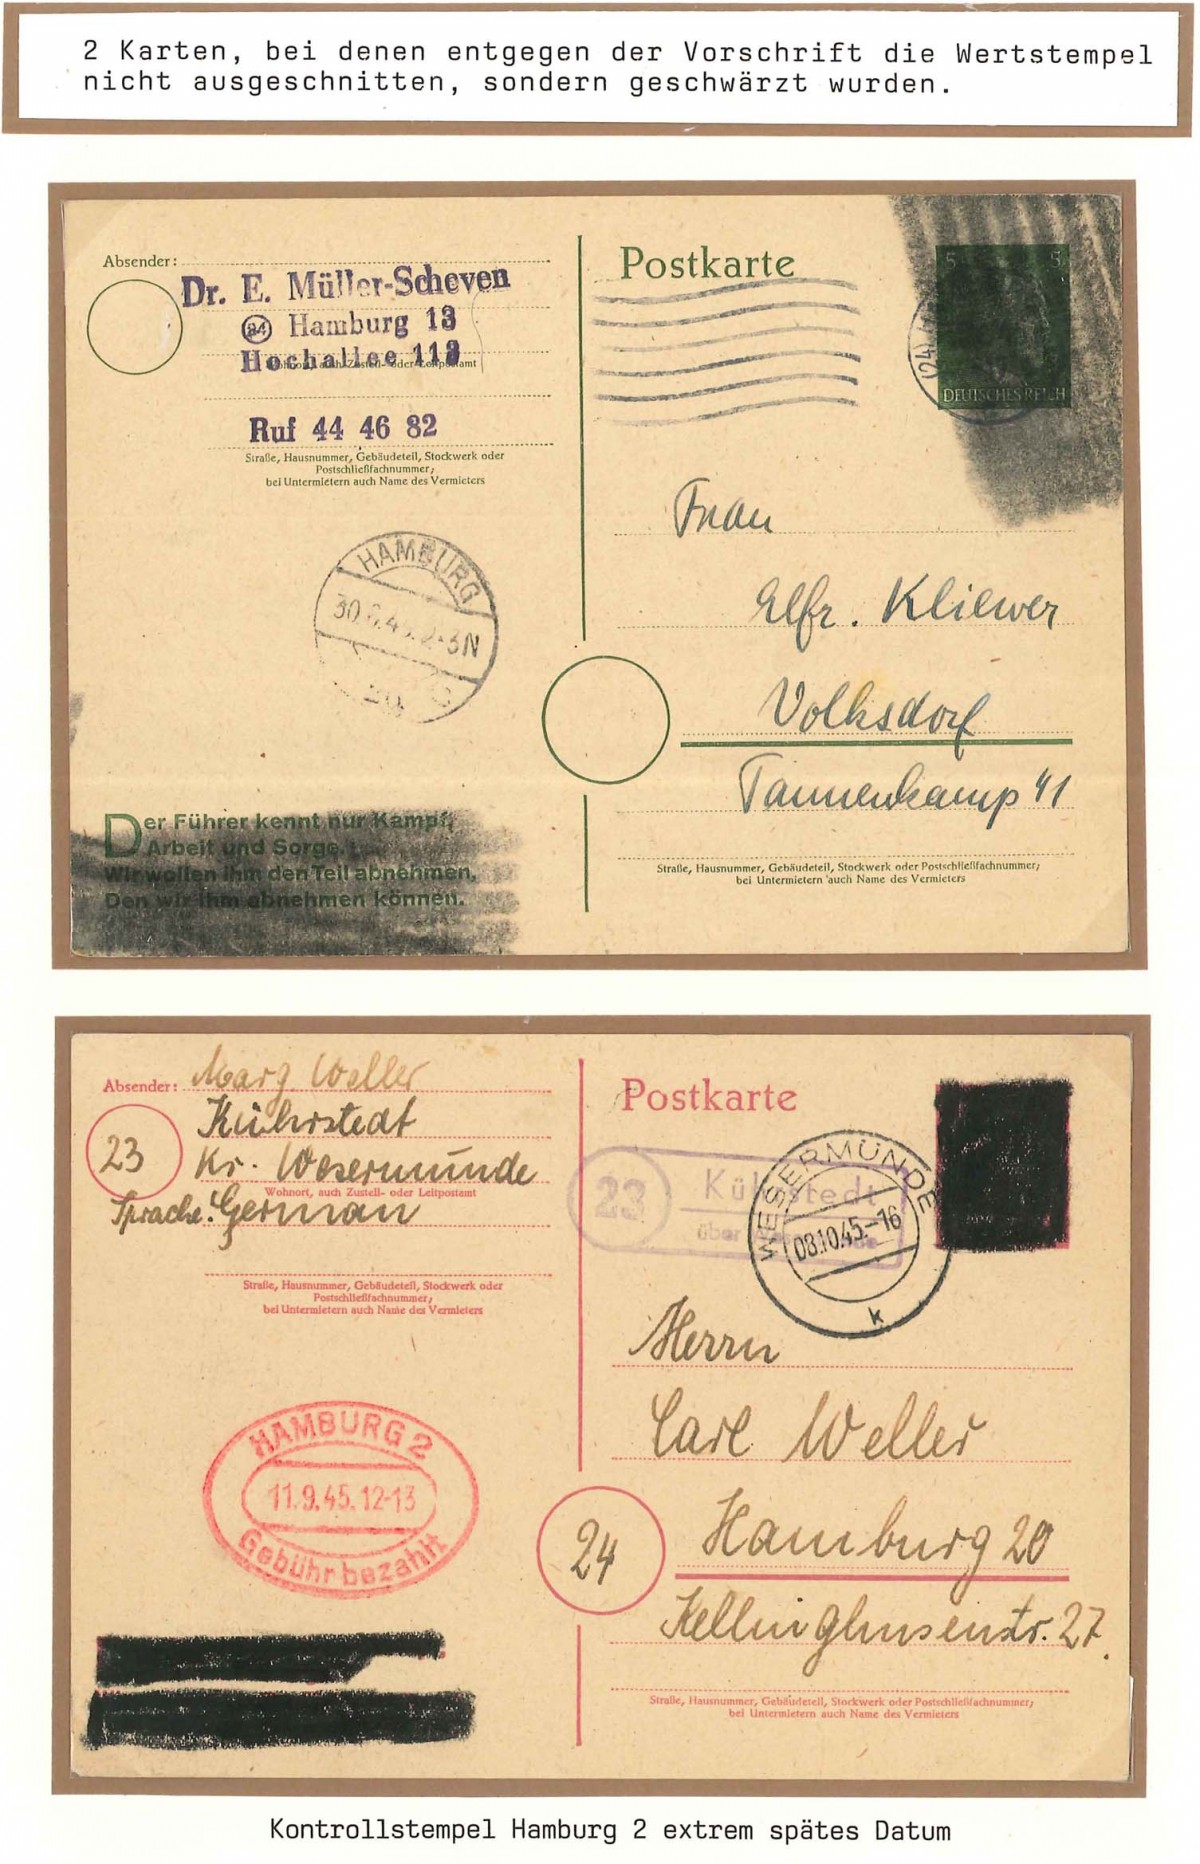 2 Karten, bei denen entgegen der Vorschrift die Wertstempel
nicht ausgeschnitten, sondern geschwärzt wurden.
Absender:
Dr. E. Müller-Scheven
24 Hamburg 13
Hochallee 113
Wohnort, auch Zustell- oder Leitpostamt
Ruf 44 46 82
Straße, Hausnummer, Gebäudeteil, Stockwerk oder
Postschließfachnummer;
bei Untermietern auch Name des Vermieters
HAMBURG
Der Führer kennt nur Kampf,
Arbeit und Sorge.
Wir wollen ihm den Teil abnehmen,
Den wir ihm abnehmen können.
Postkarte
5 5
(24)
DEUTSCHES REICH
Frau
Elfr. Kliewer
Volksdorf
Tannenkamp 41
Straße, Hausnummer, Gebäudeteil, Stockwerk oder Postschließfachnummer;
bei Untermietern auch Name des Vermieters
Absender: Marg Weller
Kührstedt
23
Kr. Wesermünde
Wohnort, auch Zustell- oder Leitpostamt
Sprache: German
Straße, Hausnummer, Gebäudeteil, Stockwerk oder
Postschließfachnummer;
bei Untermietern auch Name des Vermieters
HAMBURG 2
11.9.45.12-13
Gebühr bezahlt
Postkarte
23 Kührstedt
über
WESERMÜNDE
08.10.45.-16
k
Herrn
Carl Weller
24
Hamburg 20
Kellinghusenstr. 27.
Straße, Hausnummer, Gebäudeteil, Stockwerk oder Postschließfachnummer;
bei Untermietern auch Name des Vermieters
Kontrollstempel Hamburg 2 extrem spätes Datum